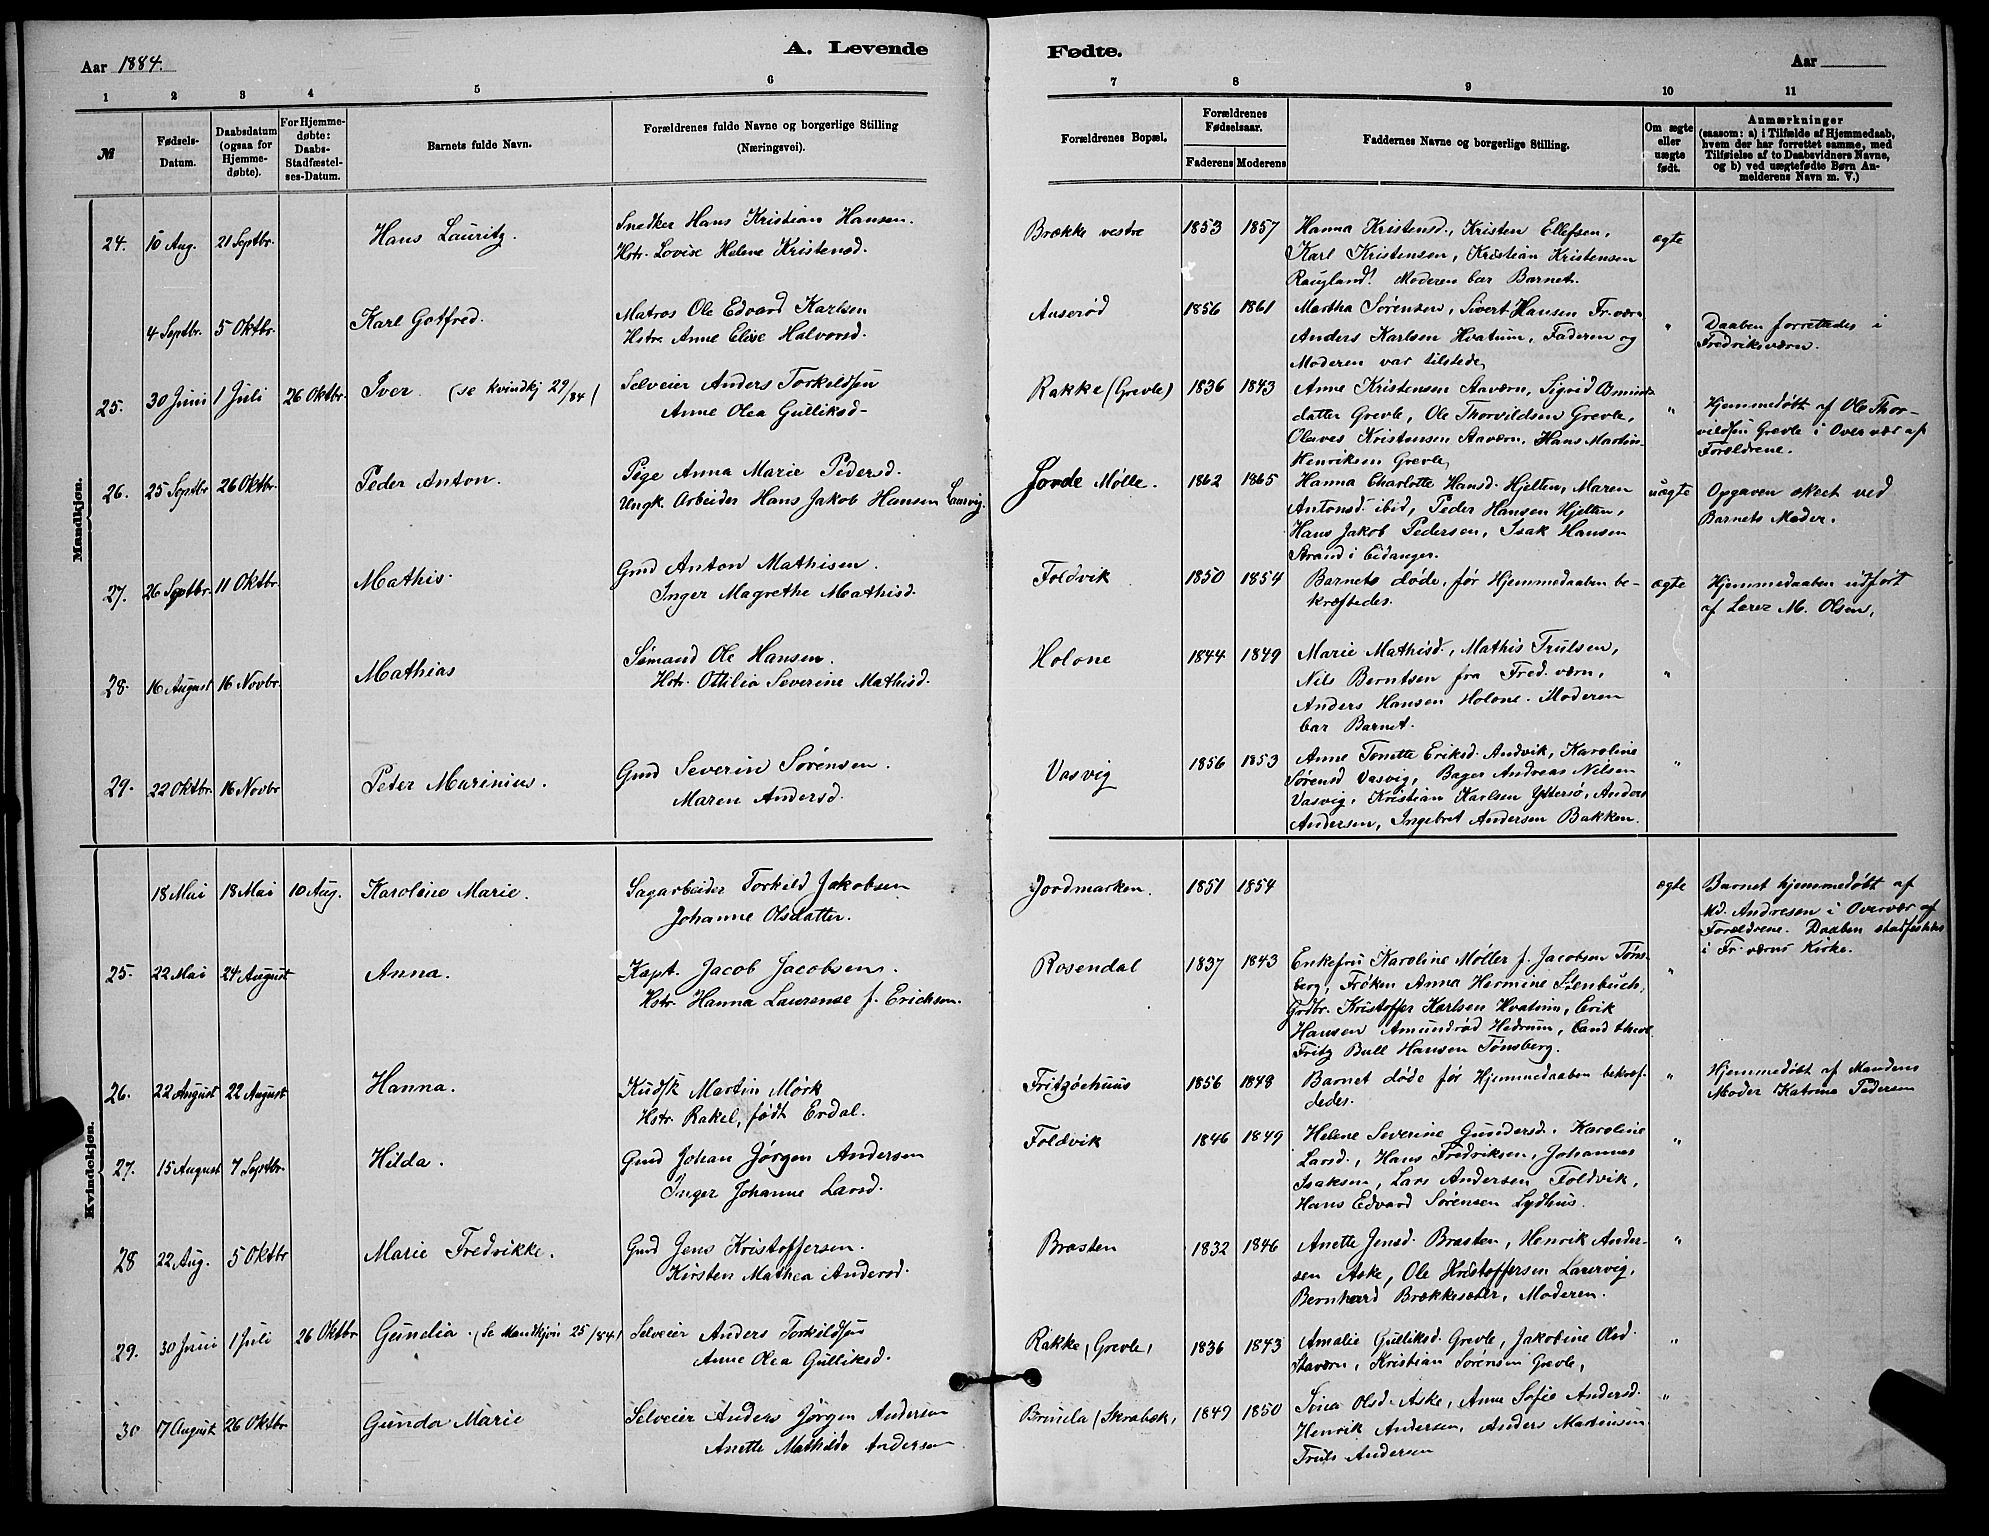 A. Levende
Fødte.
Aar 1884.
Aar
1 2 3 4 5 6
7 8 9 10 11
№
Fødsels-
Datum.
Daabsdatum
(ogsaa for
Hjemme-
døbte).
For Hjemme-
døbte:
Daabs-
Stadfæstel-
ses-Datum.
Barnets fulde Navn.
Forældrenes fulde Navne og borgerlige Stilling
(Næringsvei).
Forældrenes Bopæl.
Forældrenes
Fødselsaar.
Faderens
Moderens
Faddernes Navne og borgerlige Stilling.
Om ægte
eller
uægte
født.
Anmærkninger
(saasom: a) i Tilfælde af Hjemmedaab,
hvem der har forrettet samme, med
Tilføielse af to Daabsvidners Navne,
og b) ved uægtefødte Børn An-
melderens Navn m. V.)
Mandkjøn.
24. 10 Aug. 21 Septbr. Hans Lauritz.
Snedker Hans Kristian Hansen.
Hstr. Lovise Helene Kristensd.
Brække vestre 1853 1857
Hanna Kristensd., Kristen Ellefsen,
Karl Kristensen, Kristian Kristensen
Rauland! Moderen bar Barnet.
ægte
4 Septbr. 5 Oktbr. Karl Gotfred.
Matros Ole Edvard Karlsen
Hstr. Anne Elise Halvorsd.
Auserød 1856 1861
Martha Sørensen, Sivert Hansen Fr.værn
Anders Karlsen Hvatum, Faderen og
Moderen var tilstede,
"
Daaben forrettedes i
Fredriksværn.
25. 30 Juni 1 Juli 26 Oktbr. Iver. (se Kvindkj 29/84)
Selveier Anders Torkildsen
Anne Olea Gulliksd-
Rakke (Grevle) 1836 1843
Anne Kristensen Staværn, Sigrid Osmunds-
datter Grevle, Ole Thorvildsen Grevle,
Olaves Kristensen Staværn, Hans Martin
Henriksen Grevle,
"
Hjemmedøbt af Ole Thor-
vildsen Grevle i Overvær af
Forældrene.
26. 25 Septbr 26 Oktbr. Peder Anton.
Pige Anna Marie Pedersd.
Ungk. Arbeider Hans Jakob Hansen Laurvig.
Jorde Mølle. 1862 1865
Hanna Charlotte Hansd. Hjelten, Maren
Antonsd. ibid, Peder Hansen Hjelten,
Hans Jakob Pedersen, Isak Hansen
Strand i Eidanger.
uægte
Opgaven skeet ved
Barnets Moder.
27. 26 Septbr. 11 Oktbr. Mathis.
Gmd Anton Mathisen.
Inger Magrethe Mathisd.
Foldvik 1850 1854
Barnets døde, før Hjemmedaaben be-
kræftedes.
ægte
Hjemmedaaben udført
af Lærer M. Olsen,
28. 16 August 16 Novbr. Mathias
Sømand Ole Hansen.
Hstr. Ottilia Severine Mathisd.
Holone 1844 1849
Marie Mathisd., Mathis Trulsen,
Nils Berntsen fra Fred.værn,
Anders Hansen Holone. Moderen
bar Barnet.
"
29. 22 Oktbr. 16 Novbr Peter Marinius.
Gmd Severin Sørensen.
Maren Andersd.
Vasvig 1856 1853
Anne Tonette Eriksd. Andvik, Karoline
Sørensd Vasvig, Bager Andreas Nilsen
Vasvig, Kristian Karlsen Yttersø, Anders
Andersen, Ingebret Andersen Bakken.
"
Kvindekjøn.
18 Mai 18 Mai 10 Aug. Karoline Marie.
Sagarbeider Torkild Jakobsen
Johanne Olsdatter.
Jordmarken. 1851 1854
ægte
Barnet hjemmedøbt af
Md. Andresen i Overvær af
Forældrene. Daaben stadfestedes
i Fr.værns Kirke.
25. 22 Mai 24 August Anna.
Kapt. Jacob Jacobsen.
Hstr. Hanna Laurense f. Erichsen.
Rosendal 1837 1843
Enkefru Karoline Møller f. Jacobsen Tøns-
berg, Frøken Anna Hermine Steenbuch,
Grdbr. Kristoffer Karlsen Hvatum, Erik
Hansen Amundrød Hedrum, Cand theol
Fritz Bull Hansen Tønsberg.
"
26. 22 August 22 August Hanna.
Kudsk Martin Mørk
Hstr. Rakel, født Erdal.
Fritzøehuus 1856 1848
Barnet døde før Hjemmedaaben bekræf-
tedes.
"
Hjemmedøbt af Mandens
Moder Katrine Pedersen
27. 15 August 7 Septbr. Hilda.
Gmd Johan Jørgen Andersen
Inger Johanne Larsd.
Foldvik 1846 1849
Helene Severine Gundersd. Karoline
Larsd., Hans Fredriksen, Johannes
Isaksen, Lars Andersen Foldvik,
Hans Edvard Sørensen Lydhus.
"
28 22 Aug. 5 Oktbr Marie Fredrikke.
Gmd Jens Kristoffersen.
Kirsten Mathea Andersd.
Bråsten 1832 1846
Anette Jensd. Bråsten, Henrik Ander-
sen Aske, Ole Kristoffersen Laurvig,
Bernhard Brækkesæter, Moderen.
"
29. 30 Juni 1 Juli 26 Oktbr Gundia. (Se Mandkjøn 25/84)
Selveier Anders Torkildsen
Anne Olea Gulliksd.
Rakke (Grevle) 1836 1843
Amalie Gulliksd. Grevle, Jakobine Olsd.
Staværn, Kristian Sørensen Grevle,
"
30 17 August 26 Oktbr. Gunda Marie
Selveier Anders Jørgen Andersen
Anette Mathilde Andersen
Brunla (Skrabæk) 1849 1850
Sina Olsd. Aske, Anne Sofie Andersd.
Henrik Andersen, Anders Martinsen
Truls Andersen
"